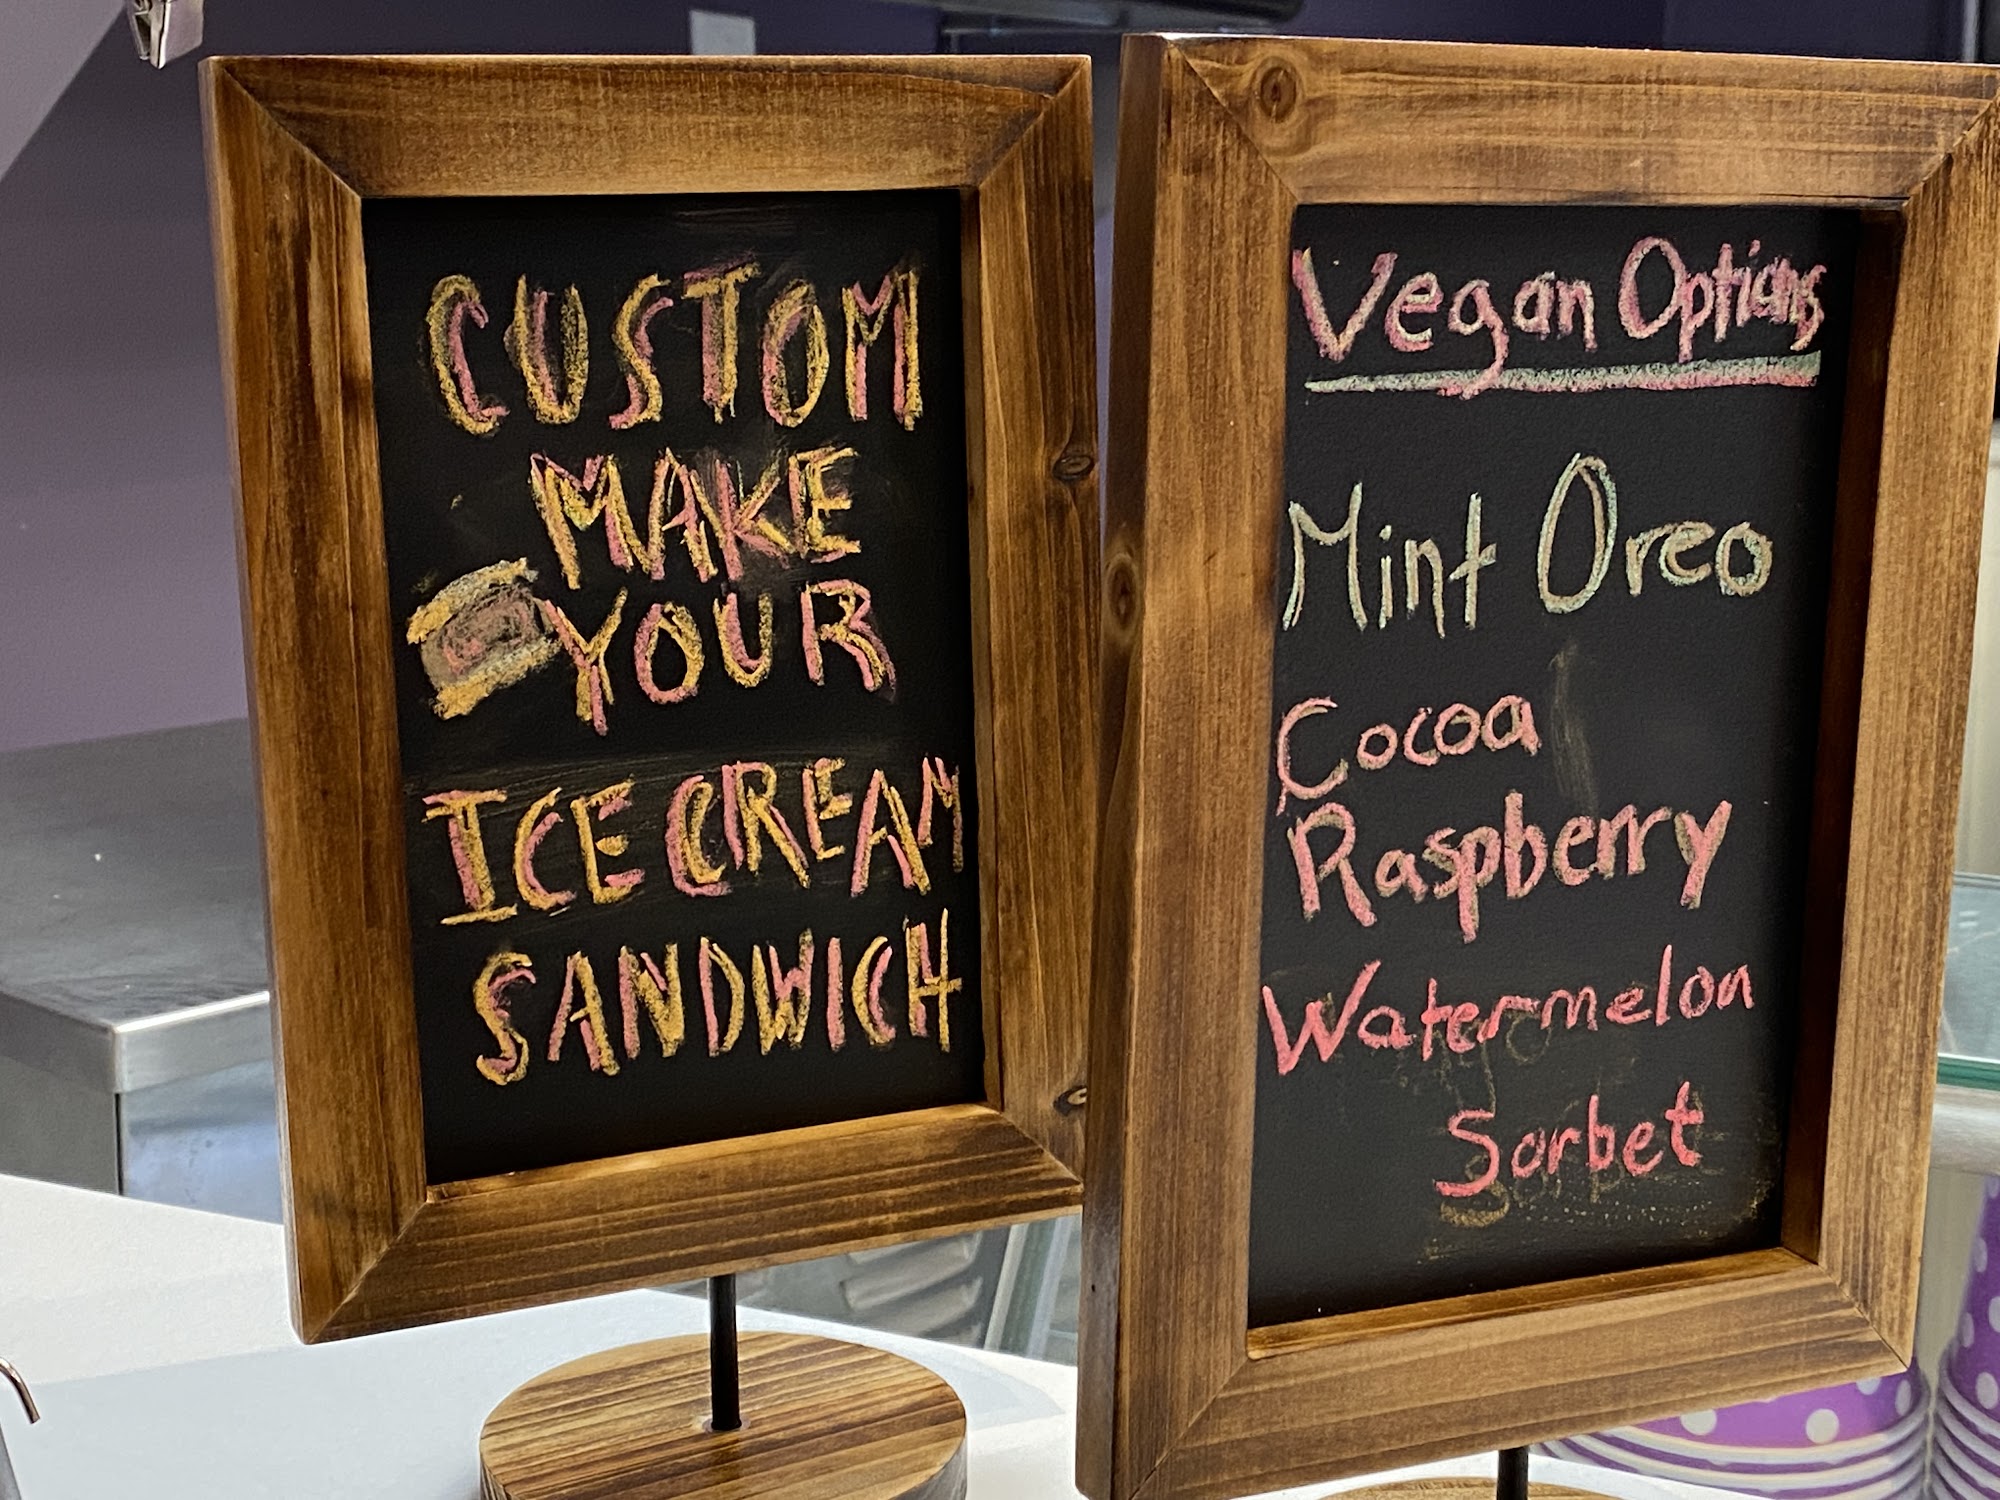 CUSTOM
MAKE
YOUR
ICE CREAM
SANDWICH
Vegan Options
Mint Oreo
Cocoa
Raspberry
Watermelon
Sorbet